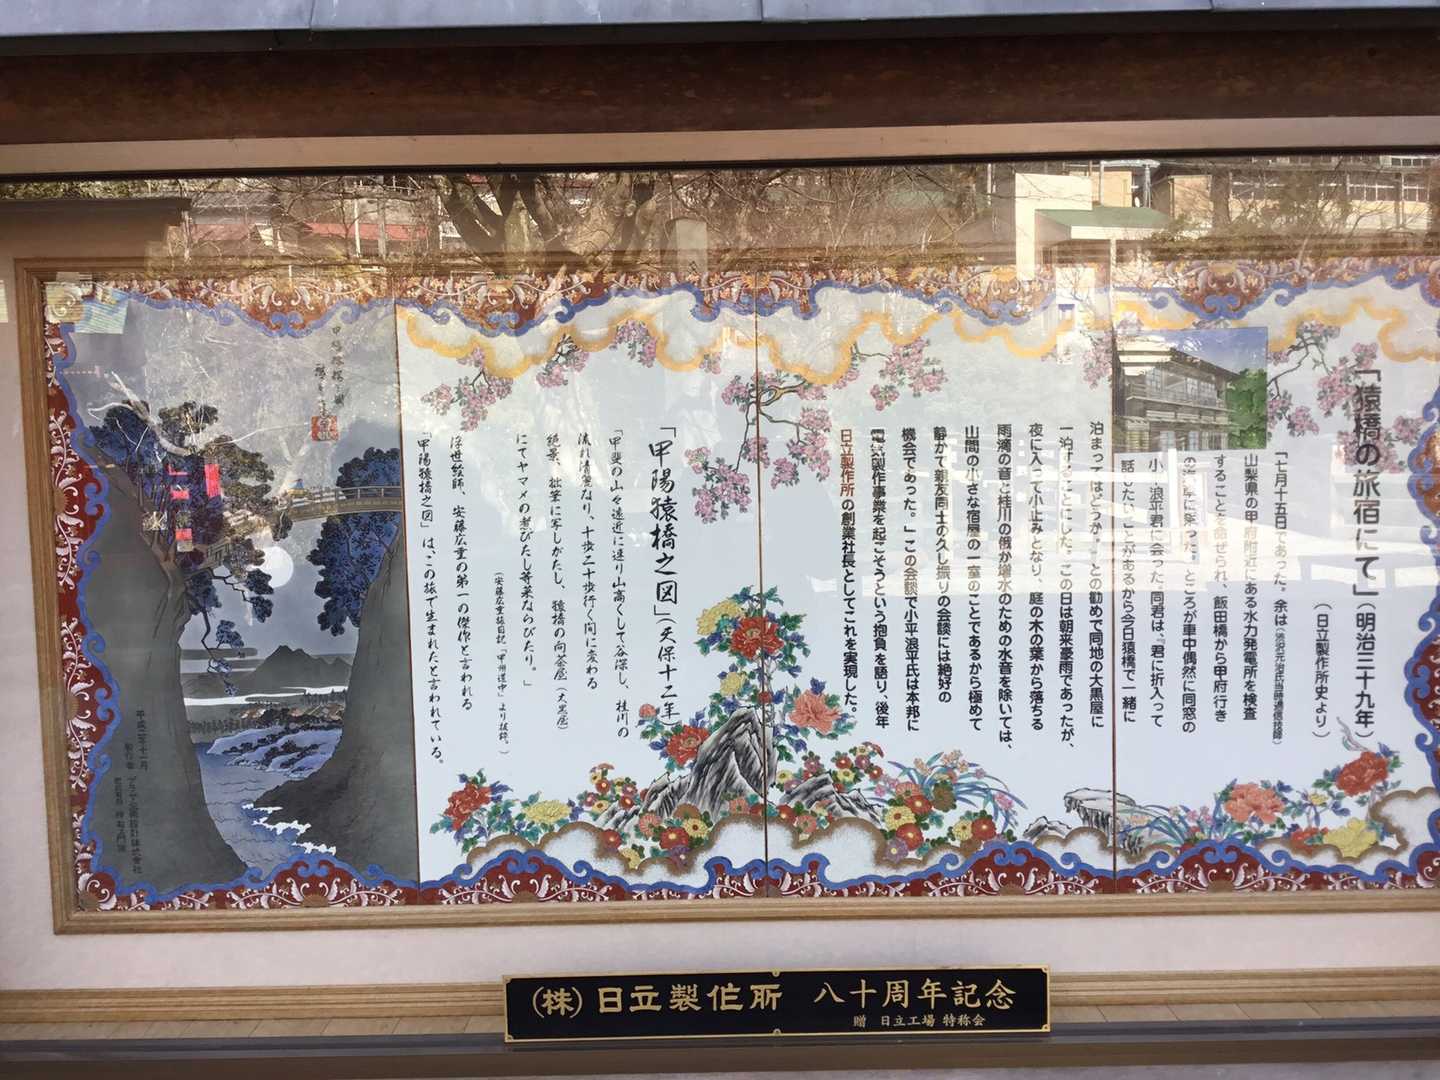 「猿橋の旅宿にて」(明治三十九年)
(日立製作所史より)
「七月十五日であった。余は(渋沢元治氏当時通信技師)
山梨県の甲府附近にある水力発電所を検査
することを命ぜられ、飯田橋から甲府行き
の汽車に乗った。ところが車中偶然に同窓の
小平浪平君に会った。同君は、『君に折入って
話したいことがあるから今日猿橋で一緒に
泊まってはどうか。』との勧めで同地の大黒屋に
一泊することにした。この日は朝来豪雨であったが、
夜に入って小止みとなり、庭の木の葉から落ちる
雨滴の音と桂川の俄か増水のための水音を除いては、
山間の小さな宿屋の一室のことであるから極めて
静かで親友同士の久し振りの会談には絶好の
機会であった。」この会談で小平浪平氏は本邦に
電気製作事業を起こそうという抱負を語り、後年
日立製作所の創業社長としてこれを実現した。
「甲陽猿橋之図」(天保十二年)
「甲斐の山々遠近に連り山高くして谷深し、桂川の
流れ清麗なり、十歩二十歩行く間に変わる
絶景、拙筆に写しがたし、猿橋の向茶屋(大黒屋)
にてヤマメの煮びたし等菜ならびたり。」
(安藤広重旅日記「甲州道中」より抜粋。)
浮世絵師、安藤広重の第一の傑作と言われる
「甲陽猿橋之図」は、この旅で生まれたと言われている。
甲陽猿橋之図
平成二年十一月
(株)日立製作所 八十周年記念
贈 日立工場 特称会